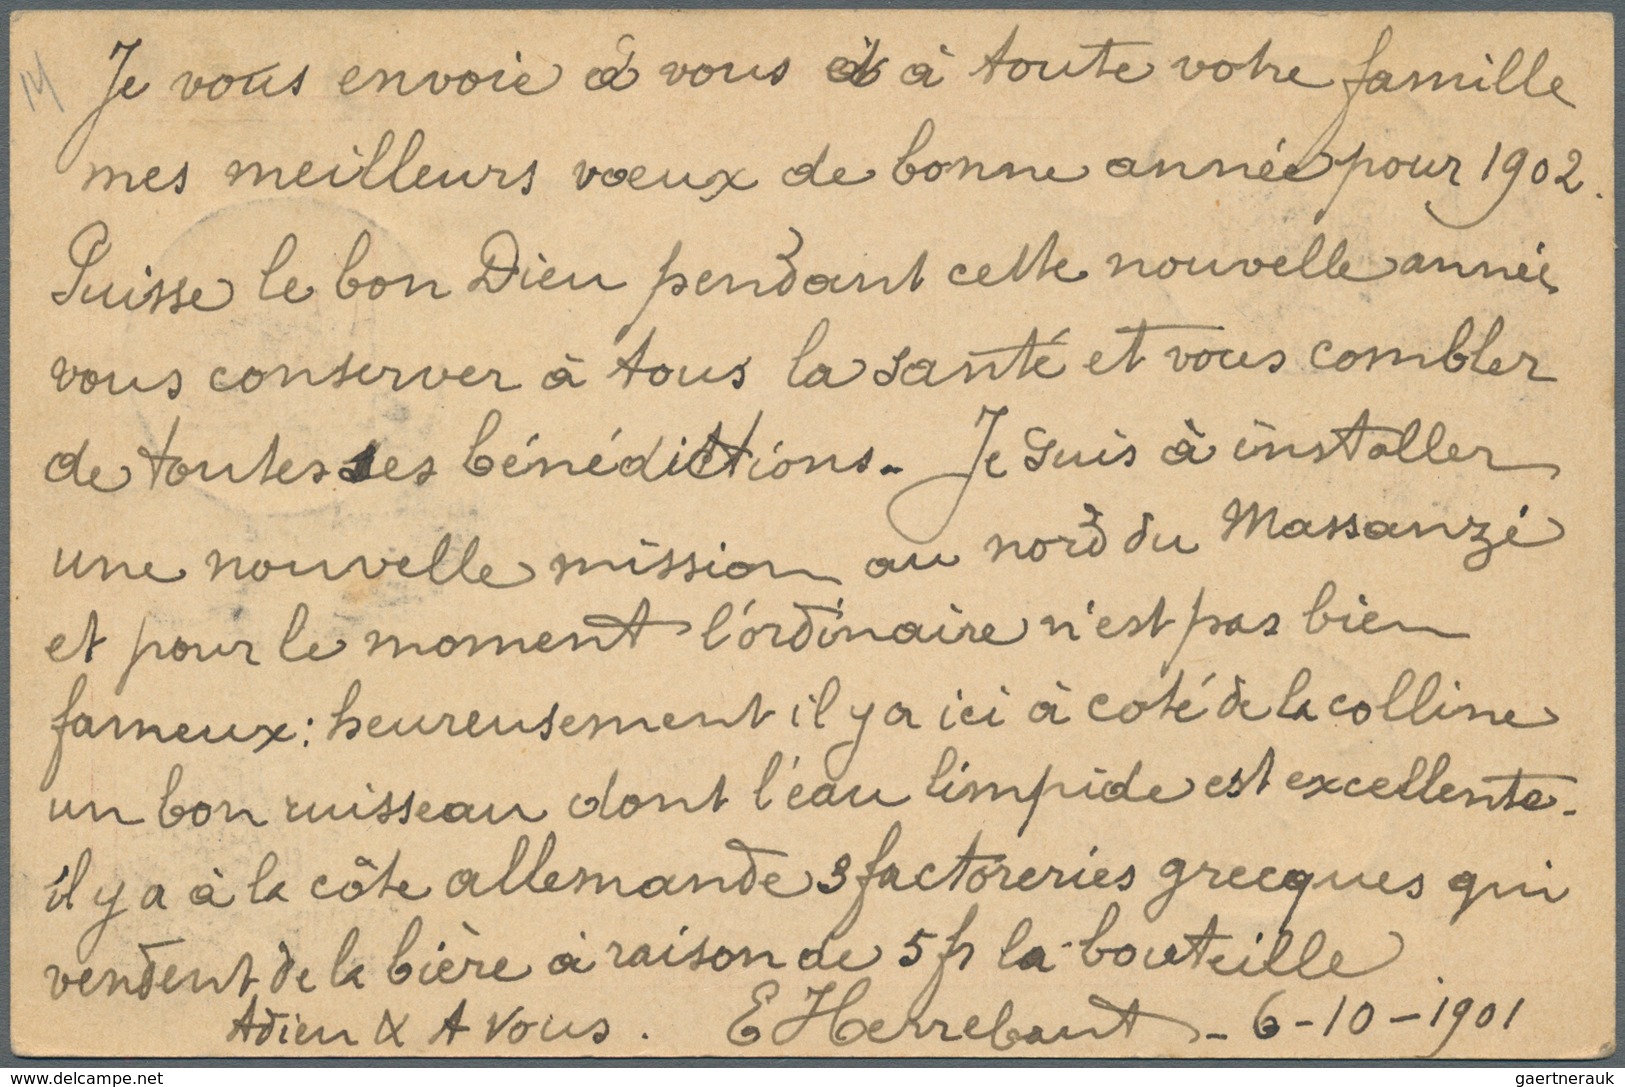 14
Je vous envoie à vous & à toute votre famille
mes meilleurs vœux de bonne année pour 1902.
Puisse le bon Dieu pendant cette nouvelle année
vous conserver à tous la santé et vous combler
de toutes ses bénédictions. Je suis à installer
une nouvelle mission au nord du Massanzé
et pour le moment l'ordinaire n'est pas bien
fameux: heureusement il y a ici à coté de la colline
un bon ruisseau dont l'eau limpide est excellente.
il y a à la côte allemande 3 factoreries grecques qui
vendent de la bière à raison de 5 fr la bouteille.
Adieu & A Vous. E Herrebaut - 6-10-1901
delcampe.net
gaertnerauk